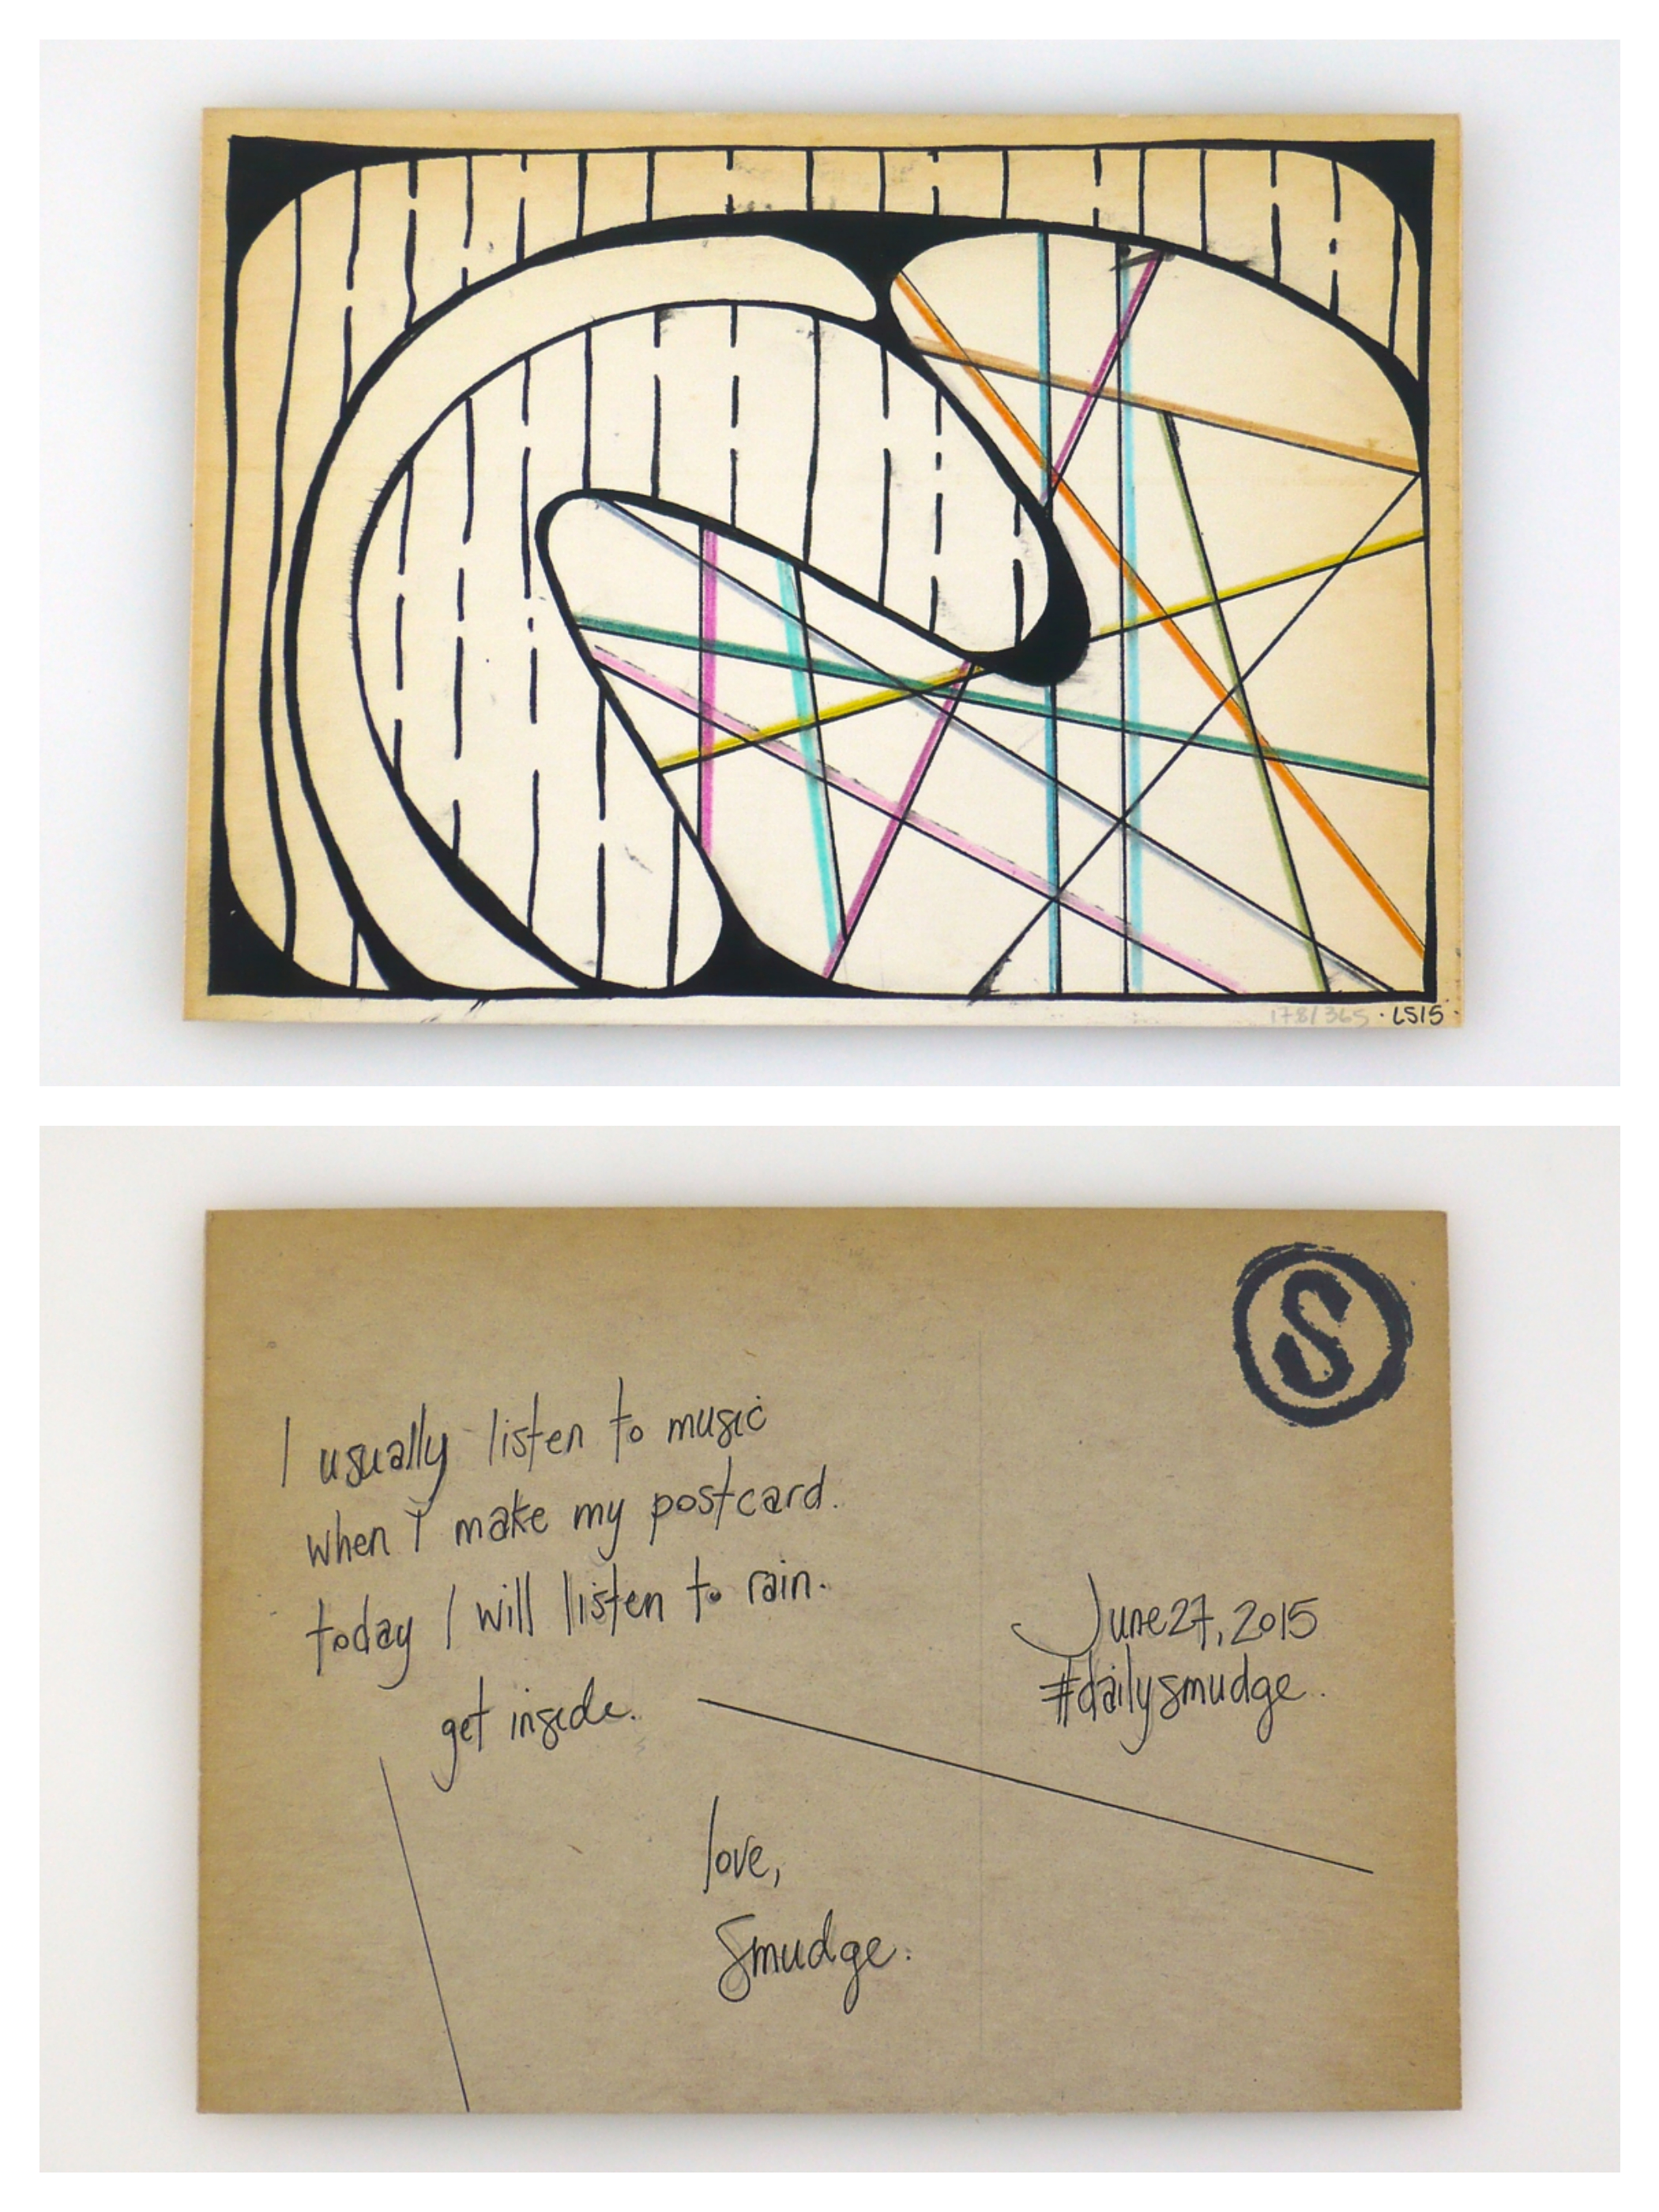 178/365 · LS15 ·
S
I usually listen to music
when I make my postcard.
today I will listen to rain.
get inside.
June 27, 2015
#dailysmudge.
love,
Smudge.